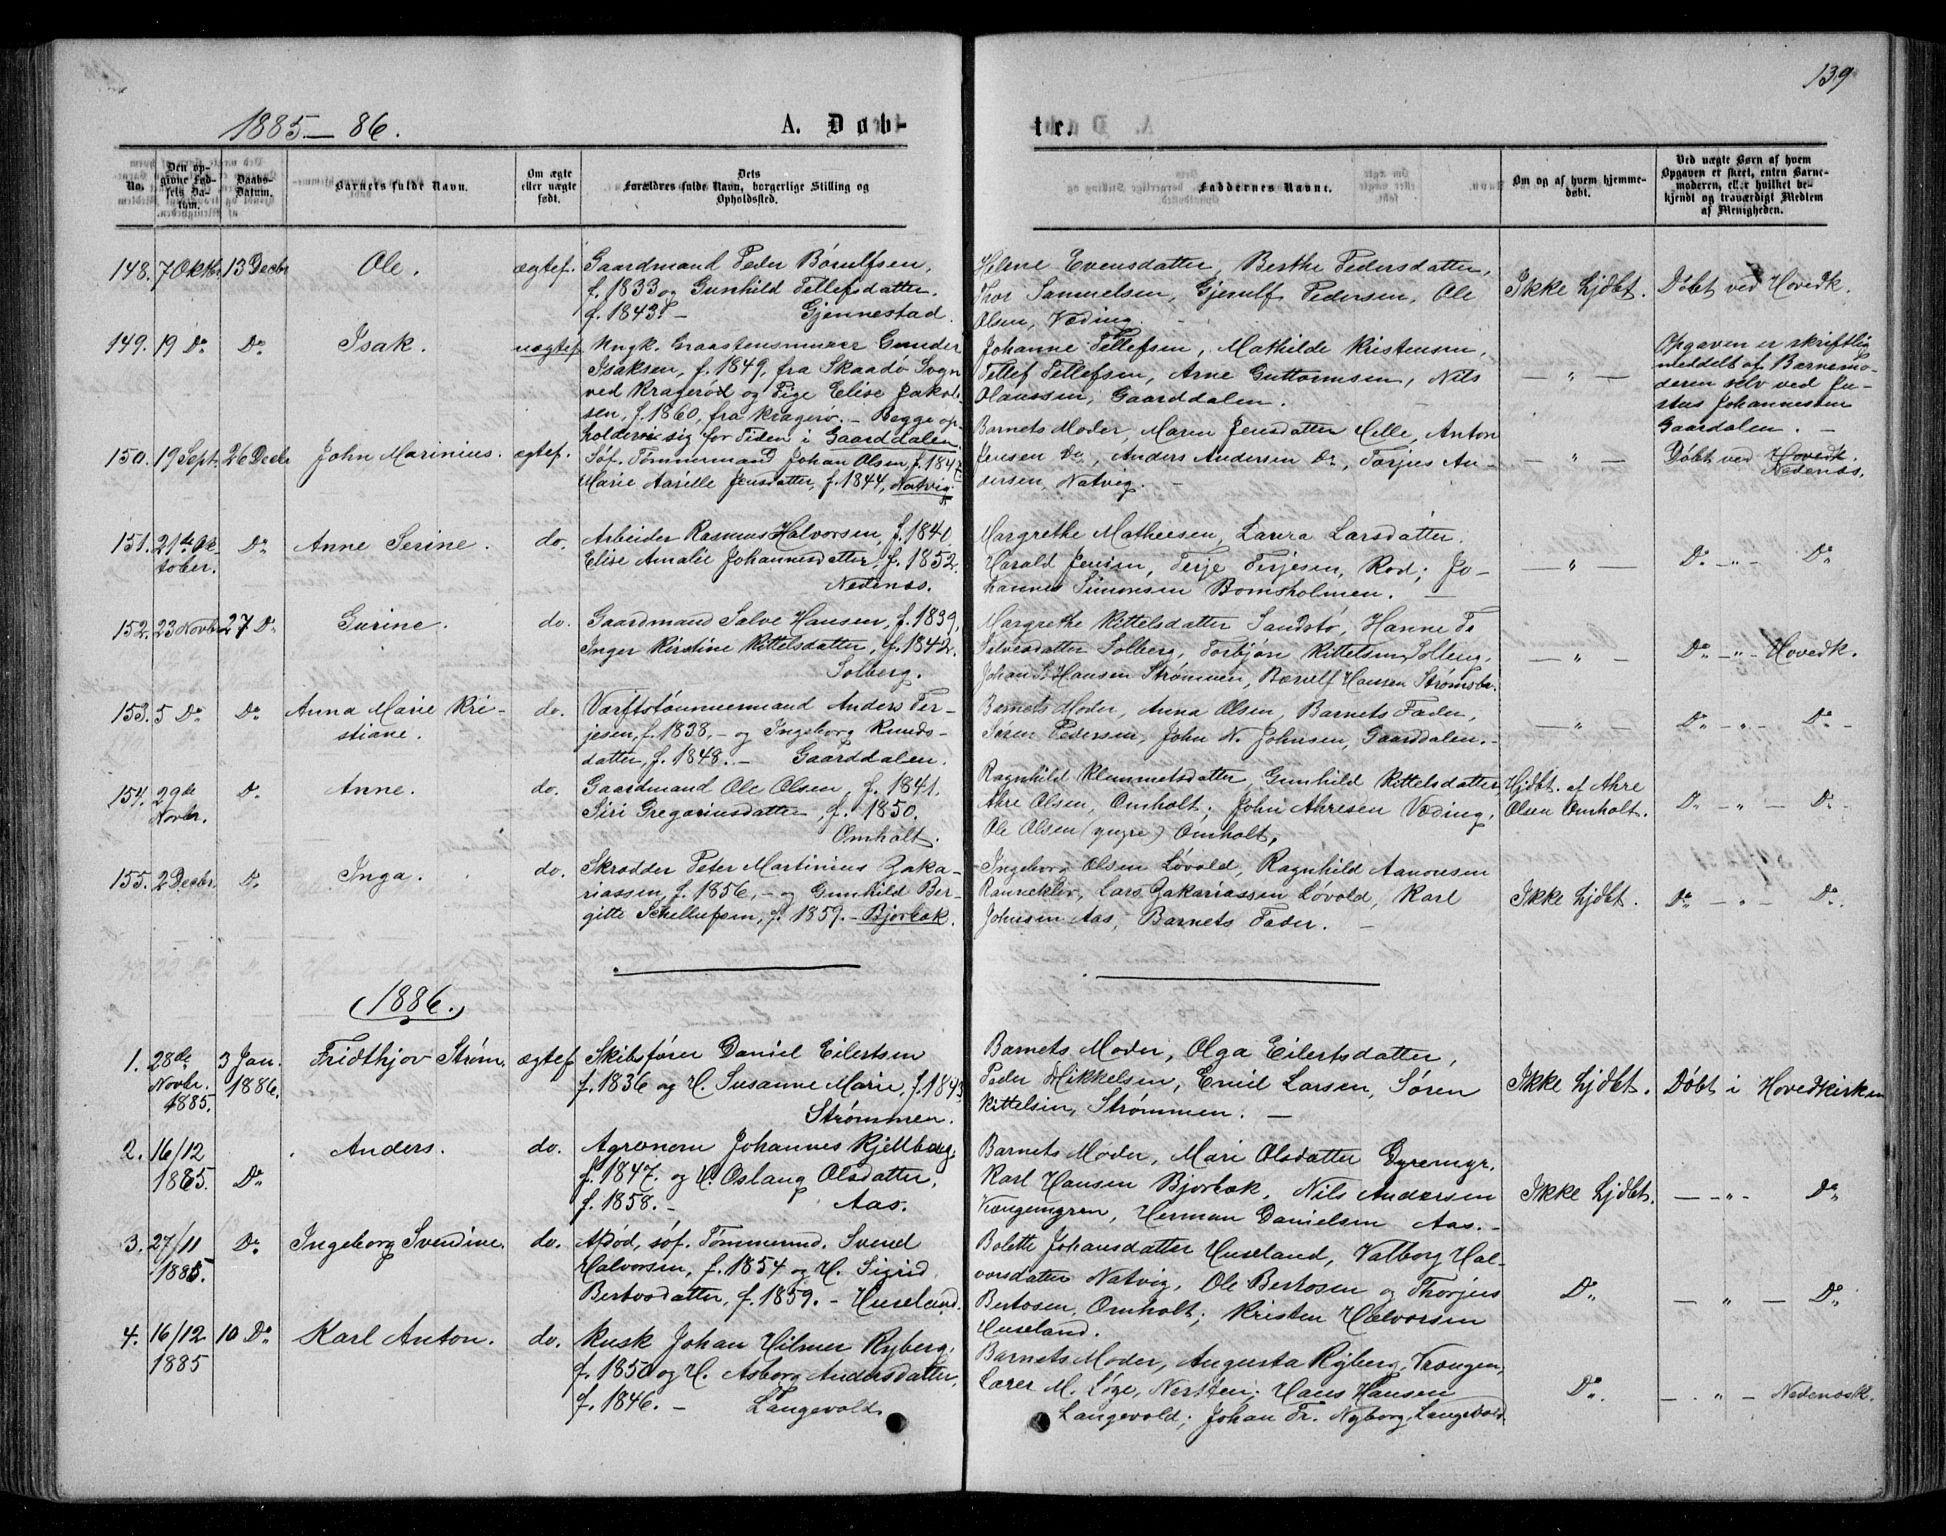 139
1885–86.
A. Døb-
te.
No.
Den opgivne Fødsels Datum.
Daabs-Datum.
Barnets fulde Navn.
Om ægte eller uægte født.
Dets Forældres fulde Navn, borgerlige Stilling og Opholdssted.
Faddernes Navne.
Om og af hvem hjemmedøbt.
Ved uægte Børn af hvem Opgaven er skeet, enten Barnemoderen, eller hvilket bekjendt og troværdigt Medlem af Menigheden.
148. 7 Oktbr 13 Decbr Ole. ægtef. Gaardmand Peder Børulfsen,
f. 1833 og Gunhild Tellefsdatter.
f. 1843. – Gjennestad.
Helene Evensdatter, Berthe Pedersdatter,
Thor Samuelsen, Gjerulf Pedersen, Ole
Olsen, Væding.
Ikke hjdbt. Døbt ved Hovedk.
149. 19 Do Do Isak. uægtef. Ungk. Graastensmurer Gunder
Isaksen, f. 1849, fra Skaadø Sogn
ved Kragerød og Pige Elise Jakob-
sen, f. 1860, fra Kragerø. – Begge op-
holder sig for Tiden i Gaarddalen.
Johanne Tellefsen, Mathilde Kristensen,
Tellef Tellefsen, Arne Guttormsen, Nils
Olaussen, Gaarddalen.
— " — Opgaven er skriftlig
meddelt af Barnemo-
deren selv ved Ju-
stus Johannessen
Gaardalen. –
150. 19 Sept. 26 Decbr John Marinius. ægtef. Søf. Tømmermand Johan Olsen, f. 1847
Marie Aarelle Jensdatter, f. 1844, Natvig.
Barnets Moder, Maren Jensdatter Hille, Anton
Jensen Do, Anders Andersen Do, Torjus An-
dersen, Natvig.
— " — Døbt ved Hovedk.
Nedenæs.
151. 21de Ok-
tober. Do Anne Serine. do. Arbeider Rasmus Halvorsen, f. 1840.
Elise Amalie Johannesdatter, f. 1852.
Nedenæs.
Margrethe Mathiesen, Laura Larsdatter.
Harald Jensen, Terje Terjesen, Rod; Jo-
hannes Simonsen Bomsholmen. —
— " — Do – " – Do
152. 23 Novbr 27 Do Gurine. do. Gaardmand Salve Hansen, f. 1839,
Inger Kirstine Kittelsdatter, f. 1842.
Solberg.
Margrethe Kittelsdatter Sandstø, Hanne
Salvesdatter Solberg, Torbjørn Kittelsen Solberg,
Johan Hansen Strømmen, Børulf Hansen Strømsbo.
— " — Do – " – Hovedk.
153. 5 Do Do Anna Marie Kri-
stiane. do. Værftstømmermand Anders Ter-
jesen, f. 1838, – og Ingeborg Knuds-
datter, f. 1848. – Gaarddalen.
Barnets Moder, Anna Olsen, Barnets Fader,
Søren Pedersen, John N. Johnsen, Gaarddalen. –
— " — Do – " – Do –
154. 29de
Novbr. Do Anne. do. Gaardmand Ole Olsen, f. 1841.
Siri Gregoriusdatter, f. 1850.
Omholt.
Ragnhild Klemmetsdatter, Gunhild Kittelsdatter
Ahre Olsen, Omholt; John Ahresen Væding,
Ole Olsen (yngre) Omholt,
Hjdbt. af Ahre
Olsen Omholt. Do – " – Do
155. 2 Decbr. Do Inga. do. Skrædder Peter Martinius Zaka-
riassen, f. 1856, – og Gunhild Ber-
gitte Schellufsen, f. 1859. – Bjorbæk.
Ingeborg Olsen Løvold, Ragnhild Aanonsen
Ranneklev, Lars Zakariassen Løvold, Karl
Johnsen Aas, Barnets Fader. –
Ikke hjdbt. Do – " – Do.
1886.
1. 28de
Novbr.
1885. 3 Jan.
1886. Fridthjov Strøm. ægtef. Skibsfører Daniel Eilertsen
f. 1836 og H. Susanne Marie, f. 1843
Strømmen.
Barnets Moder, Olga Eilertsdatter,
Peder Mikkelsen, Emil Larsen, Søren
Kittelsen, Strømmen. —
Ikke hjdbt. Døbt i Hovedkirken
2. 16/12
1885. Do Anders. do. Agronom Johannes Kjellberg,
f. 1847. og H. Oslaug Olsdatter,
f. 1858. – Aas.
Barnets Moder, Mari Olsdatter Dyremyr.
Karl Hansen Bjorbæk, Nils Andersen
Kongemyren, Herman Danielsen Aas. –
Ikke hjdbt. — " – Do
3. 27/11
1885. Do Ingeborg Svendine. do. Afdød, søf. Tømmermd. Svend
Halvorsen, f. 1854 og H. Sigrid
Bertosdatter, f. 1859. – Huseland.
Bolette Johansdatter Huseland, Valborg Hal-
vorsdatter Natvig, Ole Bertosen og Thorjus
Bertosen, Omholt; Kristen Halvorsen
Huseland.
Do — " – Do
4. 16/12
1885 10 Do Karl Anton. do. Kusk Johan Hilmer Ryberg,
f. 1850 og H. Asborg Andersdatter,
f. 1846. – Langevold
Barnets Moder, Augusta Ryberg, Vrangen,
Lærer M. Løge, Nersten; Hans Hansen
Langevold; Johan Fr. Nyborg, Langevold
Do. — " – Nedenæsk.